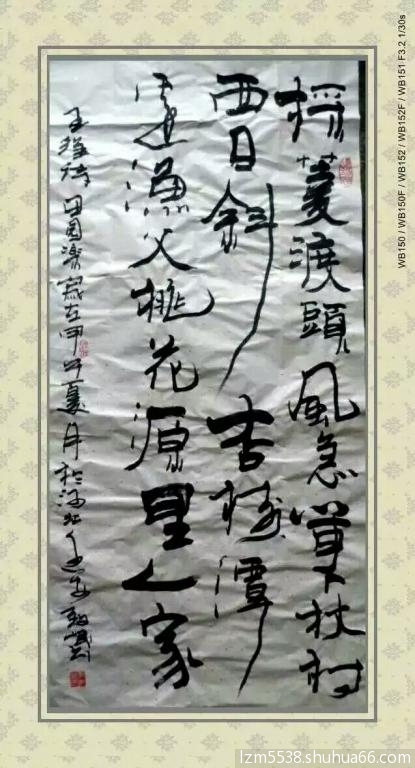 採菱渡頭風急策杖村
西日斜杏樹潭
邊漁父桃花源里人家
王維詩田園樂寫在甲午夏月於河北
WB150 / WB150F / WB152 / WB152F / WB151 F3.2 1/30s
lzm5538.shuhua66.com